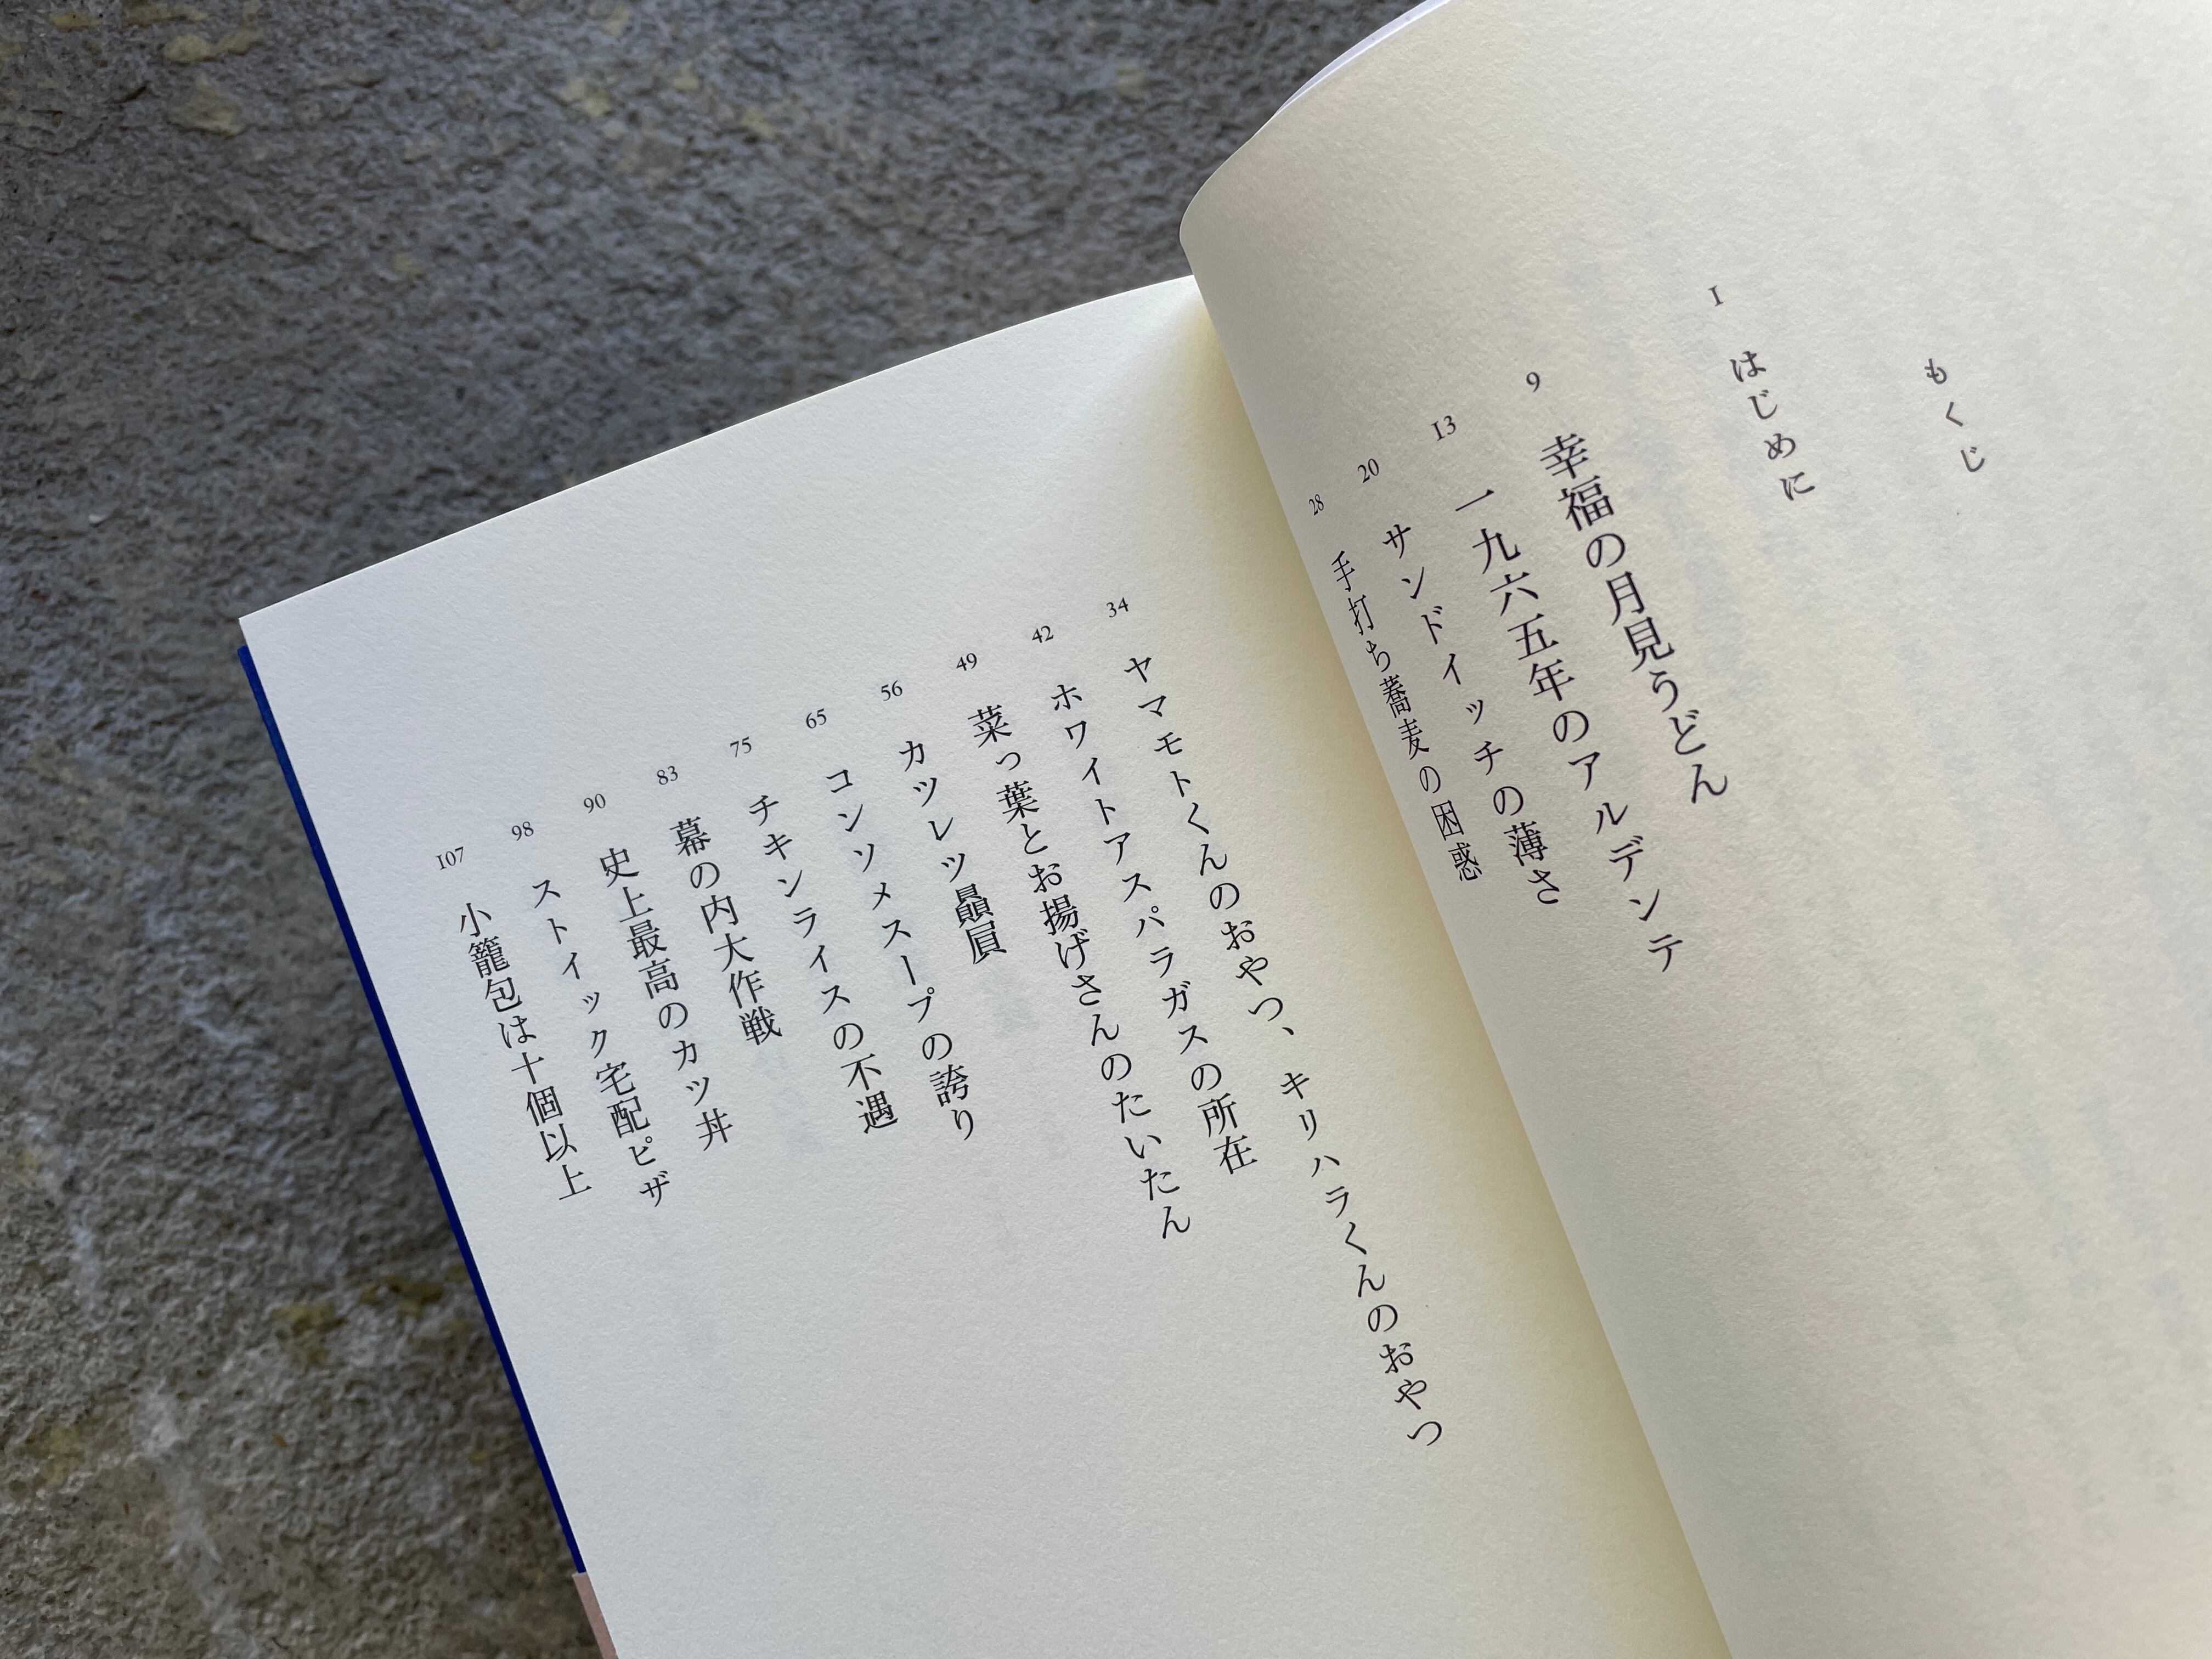 もくじ
1 はじめに
9 幸福の月見うどん
13 一九六五年のアルデンテ
20 サンドイッチの薄さ
28 手打ち蕎麦の困惑
34 ヤマモトくんのおやつ、キリハラくんのおやつ
42 ホワイトアスパラガスの所在
49 菜っ葉とお揚げさんのたいたん
56 カツレツ贔屓
65 コンソメスープの誇り
75 チキンライスの不遇
83 幕の内大作戦
90 史上最高のカツ丼
98 ストイック宅配ピザ
107 小籠包は十個以上